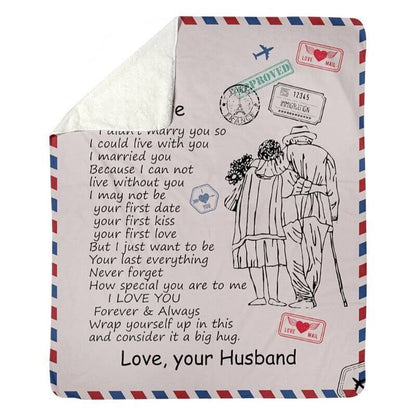 LOVE MAIL
APPROVED
PARIS
FRANCE
12345
IMMIGRATION
e
I didn't marry you so
I could live with you
I married you
Because I can not
live without you
I may not be
your first date
your first kiss
your first love
But I just want to be
Your last everything
Never forget
How special you are to me
I LOVE YOU
Forever & Always
Wrap yourself up in this
and consider it a big hug.
LOVE MAIL
Love, your Husband
LOVE MAIL